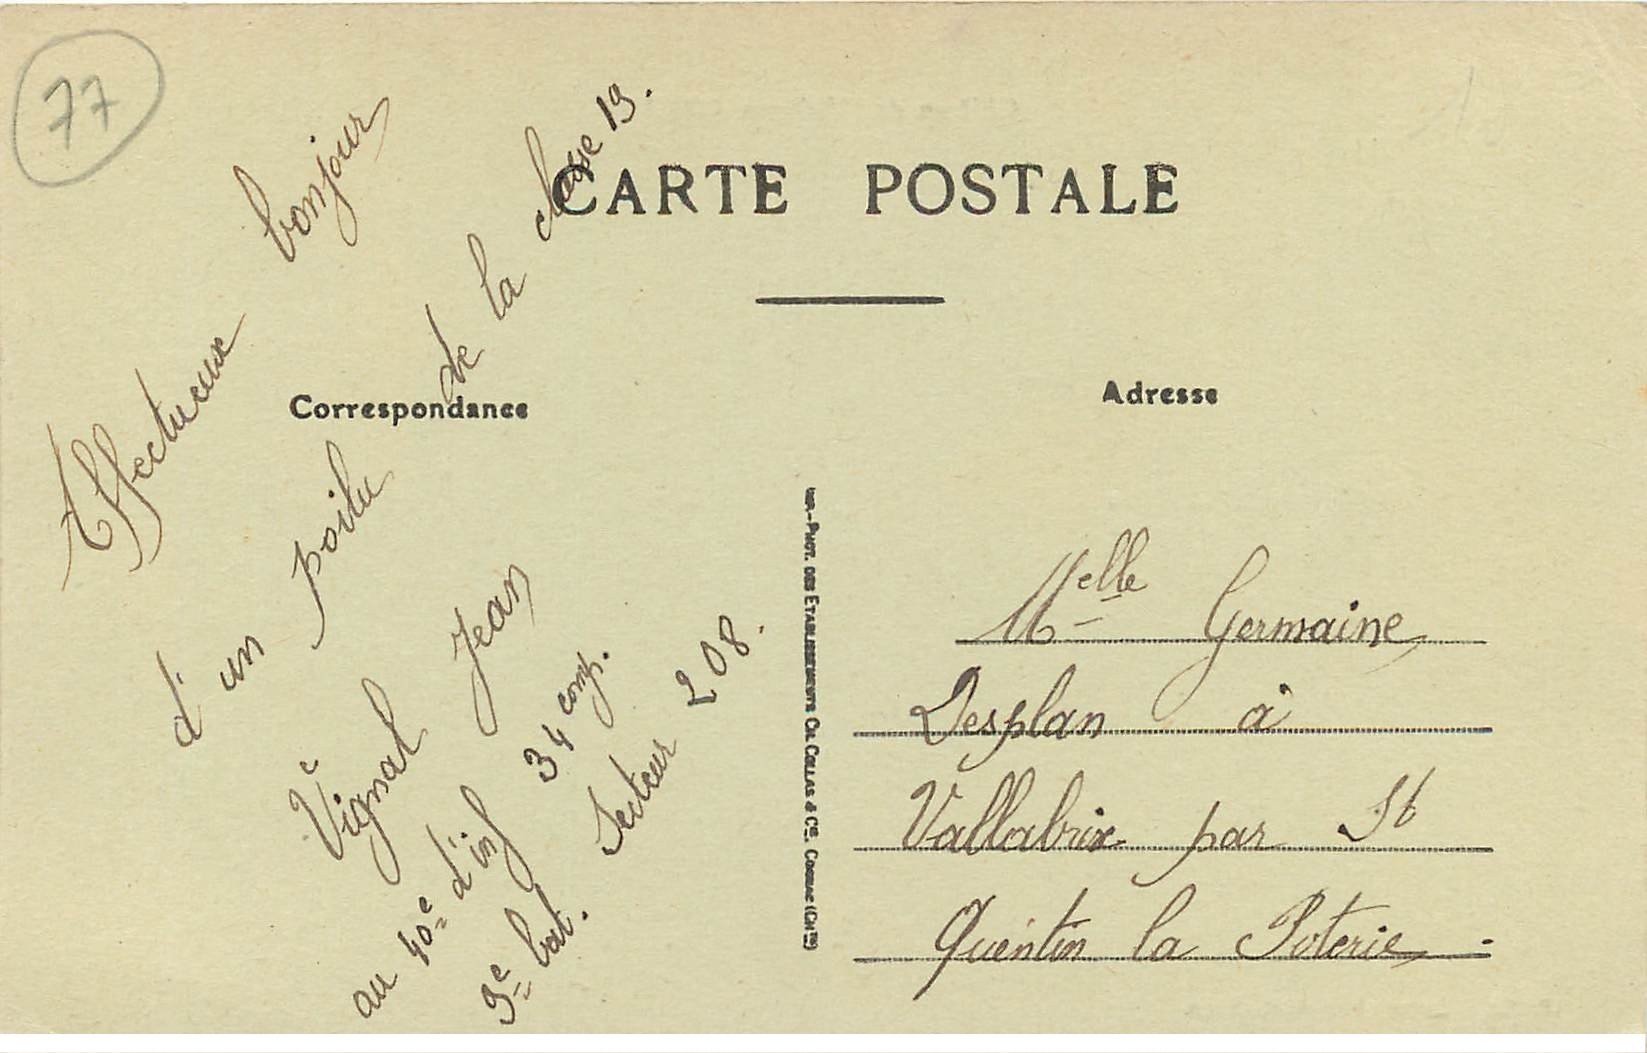 77
CARTE POSTALE
Correspondance
Affectueux bonjour
d'un poilu de la classe 19.
Vignal Jean
au 40e d'inf 34 comp.
9e bat. Secteur 208.
IMP.-PHOT. DES ETABLISSEMENTS CH. COLLAS & Cie. COGNAC (Chte)
Adresse
Melle Germaine
Desplan à
Vallabrix par St
Quentin la Poterie.